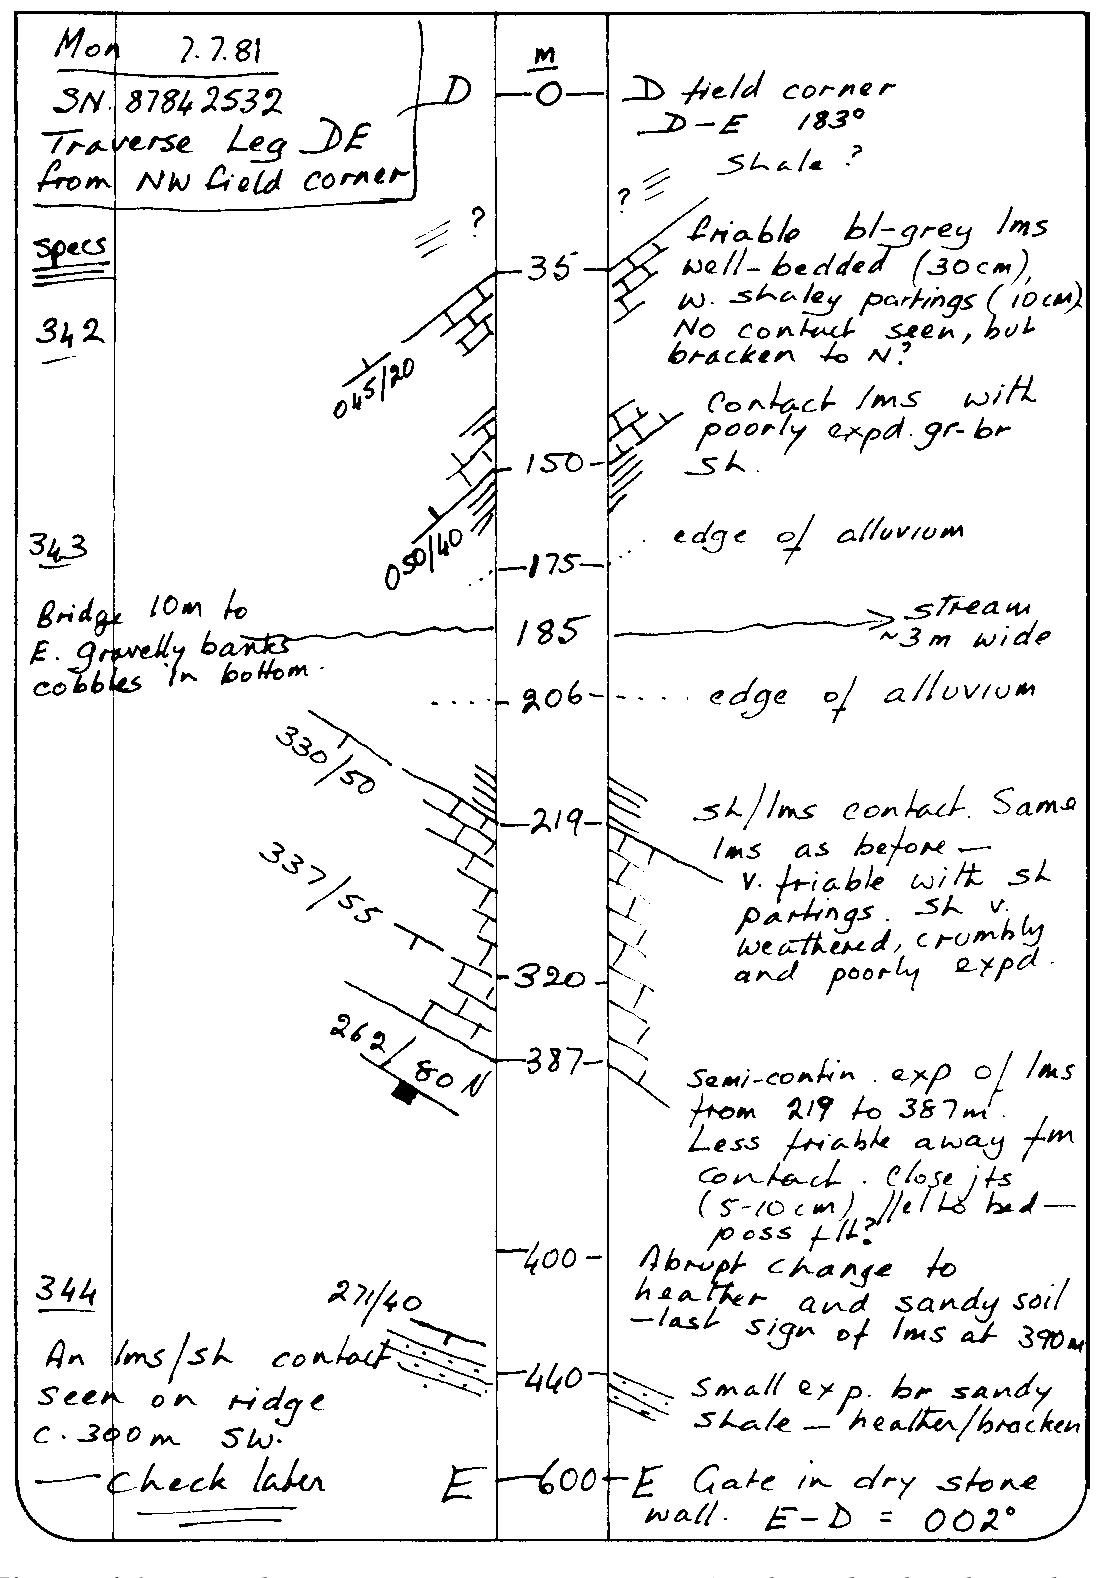 Mon 7.7.81
SN. 87842532
Traverse Leg DE
from NW field corner
m
D — 0 — D field corner
D–E 183°
Shale ?
?
?
Specs
35
friable bl-grey lms
well-bedded (30cm),
w. shaley partings (10cm)
No contact seen, but
bracken to N?
342
045/20
Contact lms with
poorly expd. gr-br
sh.
150
050/40
343
edge of alluvium
175
Bridge 10m to
E. gravelly banks
cobbles in bottom.
185
stream
~3m wide
206
edge of alluvium
330/50
219
sh/lms contact. Same
lms as before —
v. friable with sh
partings. Sh v.
weathered, crumbly
and poorly expd.
337/55
320
262/80N
387
Semi-contin. exp of lms
from 219 to 387m.
Less friable away fm
contact. Close jts
(5-10cm) //el to bed —
poss flt?
400
Abrupt change to
heather and sandy soil
– last sign of lms at 390m
344
271/40
An lms/sh contact
seen on ridge
c. 300m SW.
— Check later
440
Small exp. br sandy
shale — heather/bracken
E — 600 — E Gate in dry stone
wall. E–D = 002°